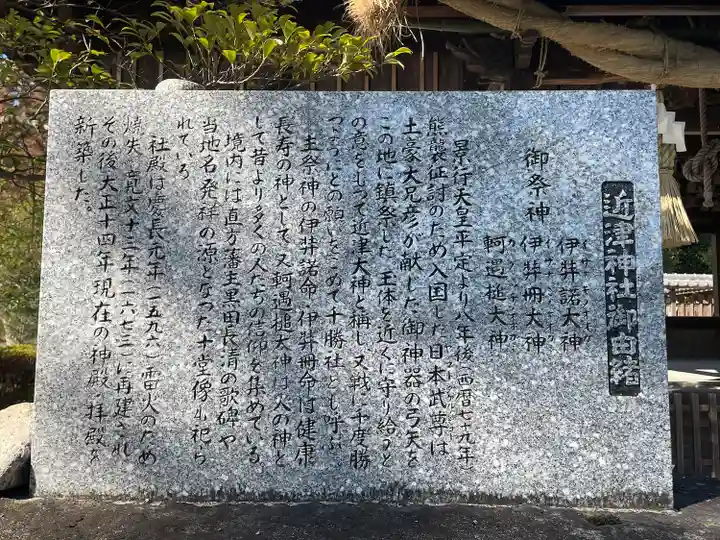 近津神社御由緒
御祭神 伊弉諾大神
伊弉冊大神
軻遇槌大神
景行天皇平定より八年後(西暦七十九年)
熊襲征討のため入国した日本武尊は
土豪大兄彦が献した御神器の弓矢を
この地に鎮祭した 王体を近くに守り給うと
の意をとって近津大神と称し又戦に千度勝
つようにとの願いをこめて千勝社とし呼ぶ。
主祭神の伊弉諾命 伊弉冊命は健康
長寿の神として又軻遇槌大神は火の神と
して昔より多くの人たちの信仰を集めている。
境内には直方藩主黒田長清の歌碑や
当地名発祥の源となった十堂像が祀ら
れている
社殿は慶長元年(一五九六)雷火のため
焼失 寛文十三年(一六七三)に再建され
その後大正十四年現在の神殿、拝殿を
新築した。